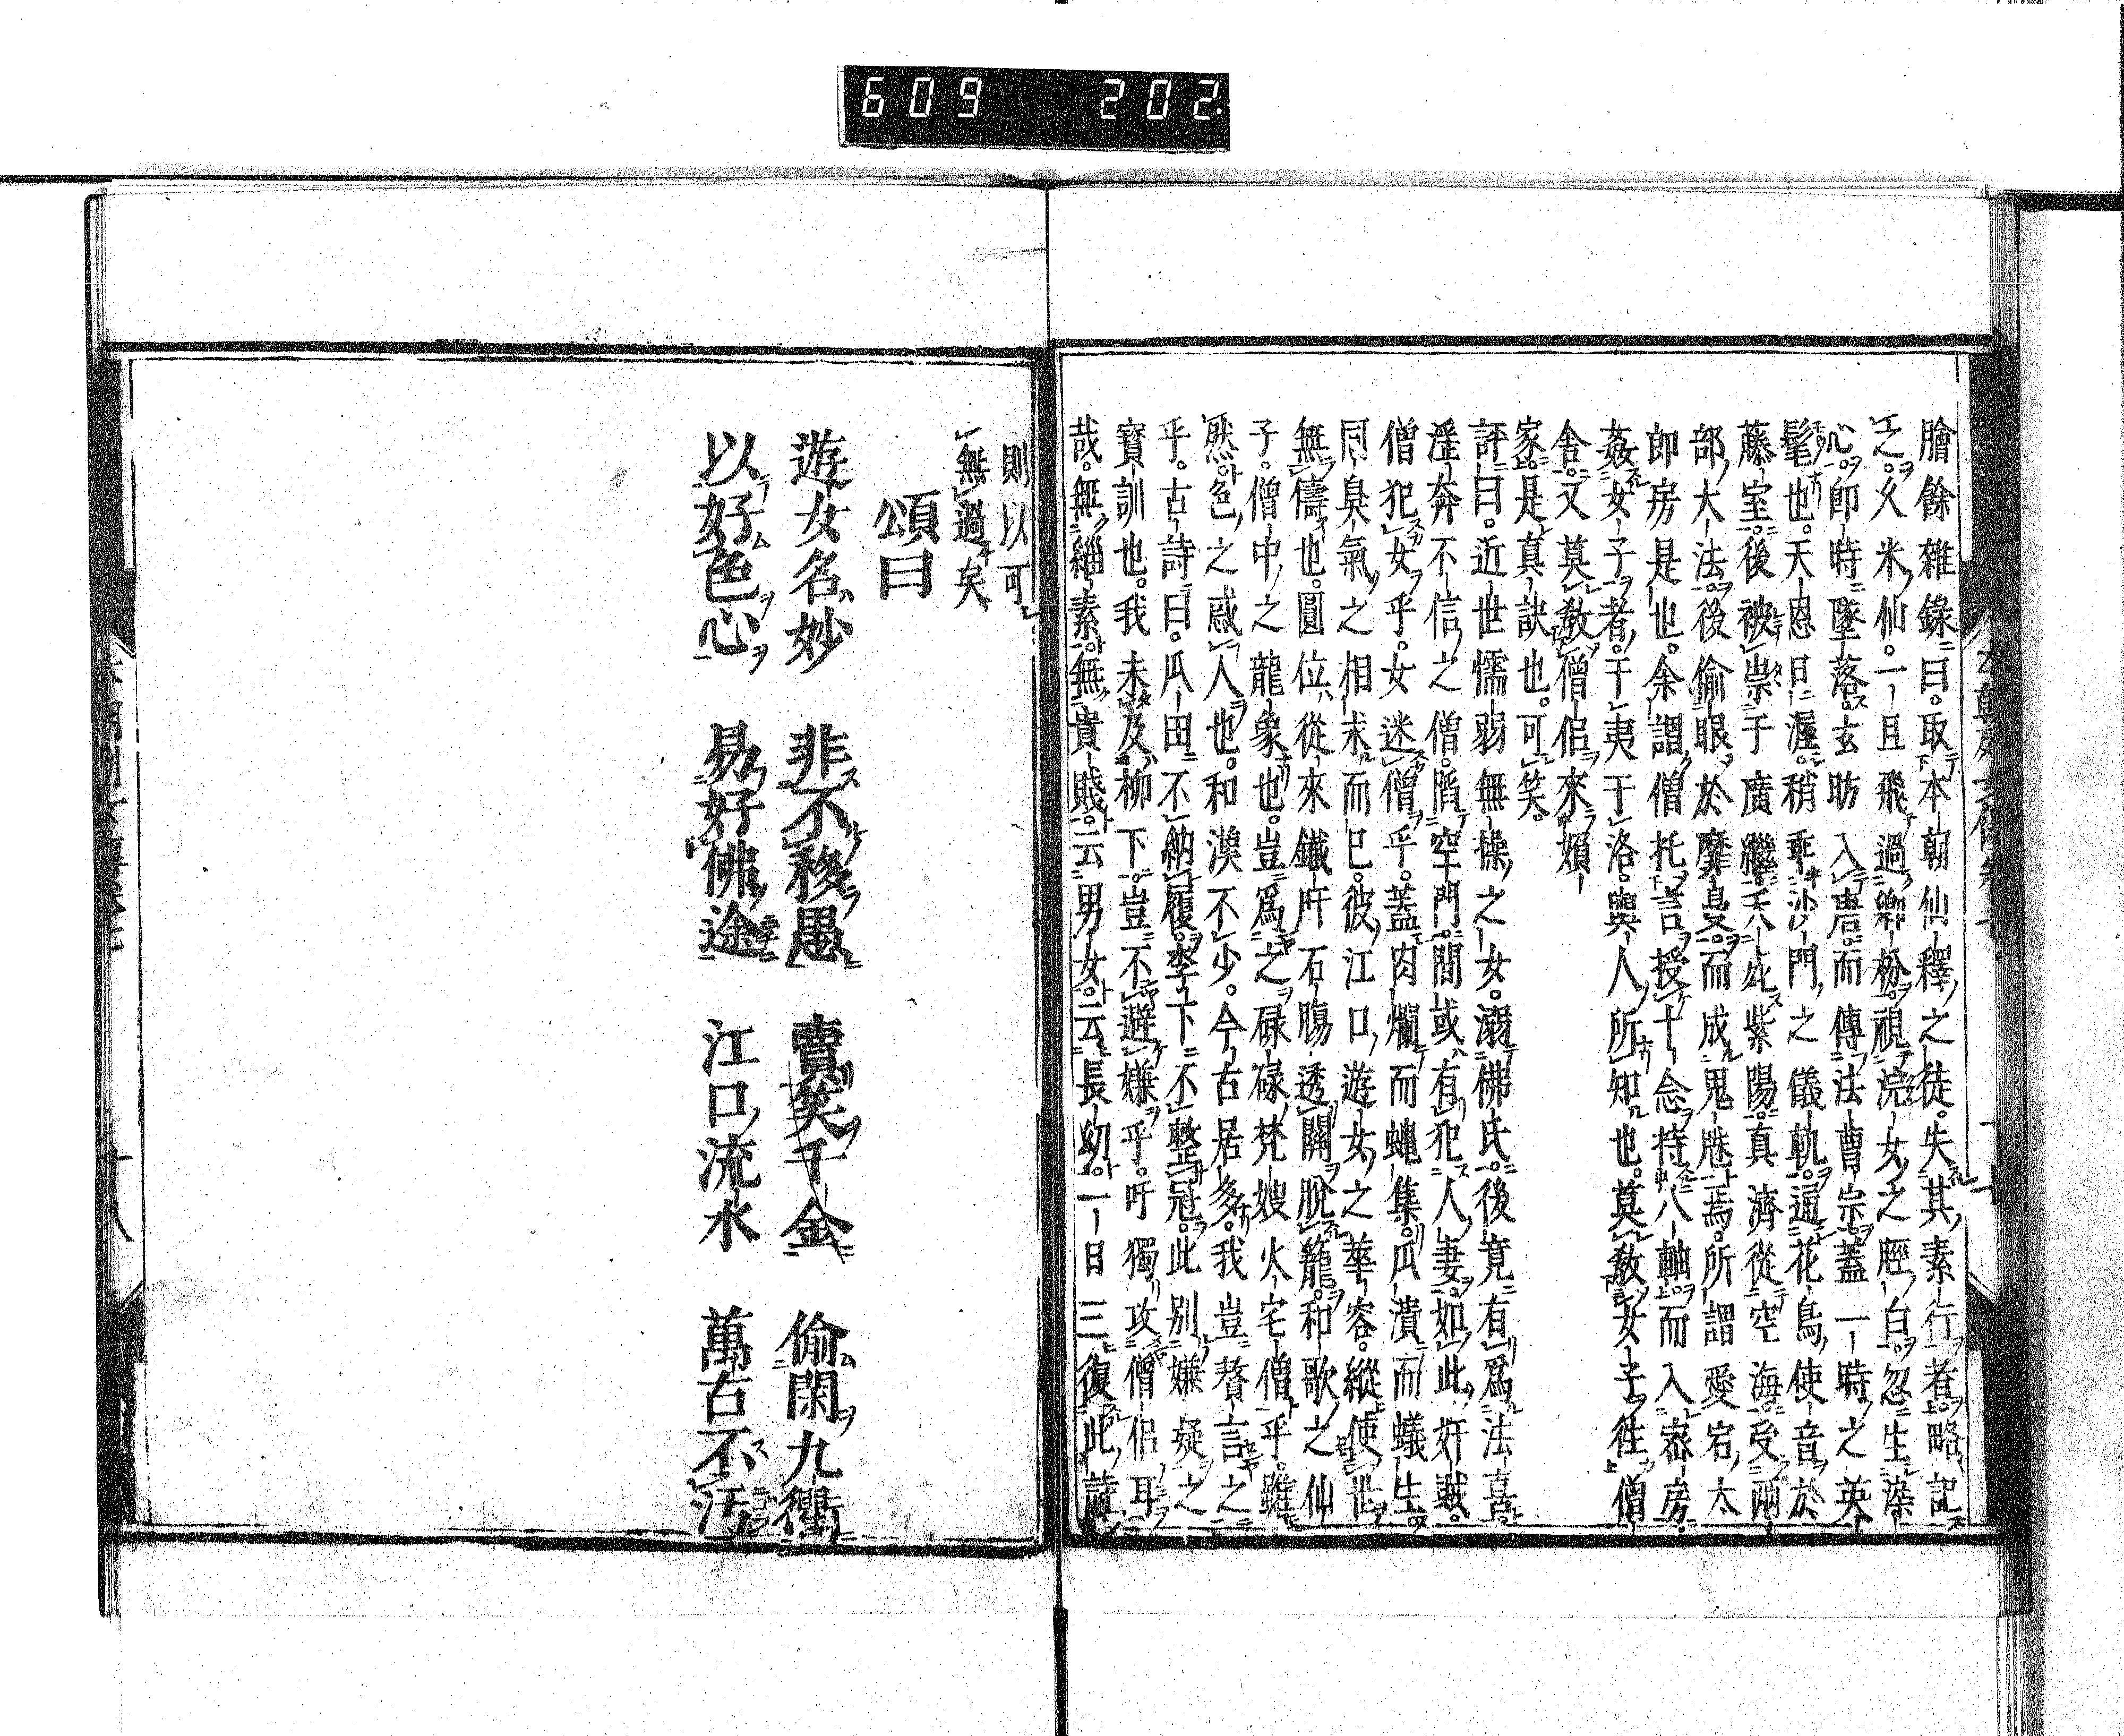 609 202.
膾餘雜錄曰。取本朝仙釋之徒。失其素行者。略記
之。久米仙。一旦飛過鄉枌。視浣女之脛白。忽生染
心。即時墜落。玄昉入唐。而傳法曹宗。蓋一時之英
髦也。天恩日渥。稍乖沙門之儀軌。通花鳥使音於
藤室。後被祟于廣繼。天此紫陽。真濟從空海。受兩
部大法。後偷眼於靡曼。而成鬼魅焉。所謂愛宕太
郎房是也。余謂僧托言授十念持八軸。而入密房。
姦女子者。于夷于洛。與人所知也。莫教女子往僧
舍。又莫教僧侶來嬪
家。是真訣也。可笑。
評曰。近世懦弱無操之女。溺佛氏。後竟有爲法喜。
淫奔不信之僧。隋空門。間或有犯人妻。如此奸賊。
僧犯女乎。女迷僧乎。蓋肉爛而蠅集。瓜潰而蟻生。
同臭氣之相求而已。彼江口遊女之華容。縱使世
無儔也。圓位從來鐵肝石腸。透關脫籠。和歌之仙
子。僧中之龍象也。豈爲之碌碌。梵嫂火宅僧乎。雖
然。色之惑人也。和漢不少。今古居多。我豈贅言之
乎。古詩曰。瓜田不納履。李下不整冠。此別嫌疑之
寶訓也。我未及柳下。豈不避嫌乎。吁獨攻僧侶耳
哉。無緇素。無貴賤。云男女。云長幼。一日三復此語
則以可
無過矣
頌曰
遊女名妙 非不移愚 賣笑千金 偷閑九衢
以好色心 易好佛途 江口流水 萬古不汚
十八